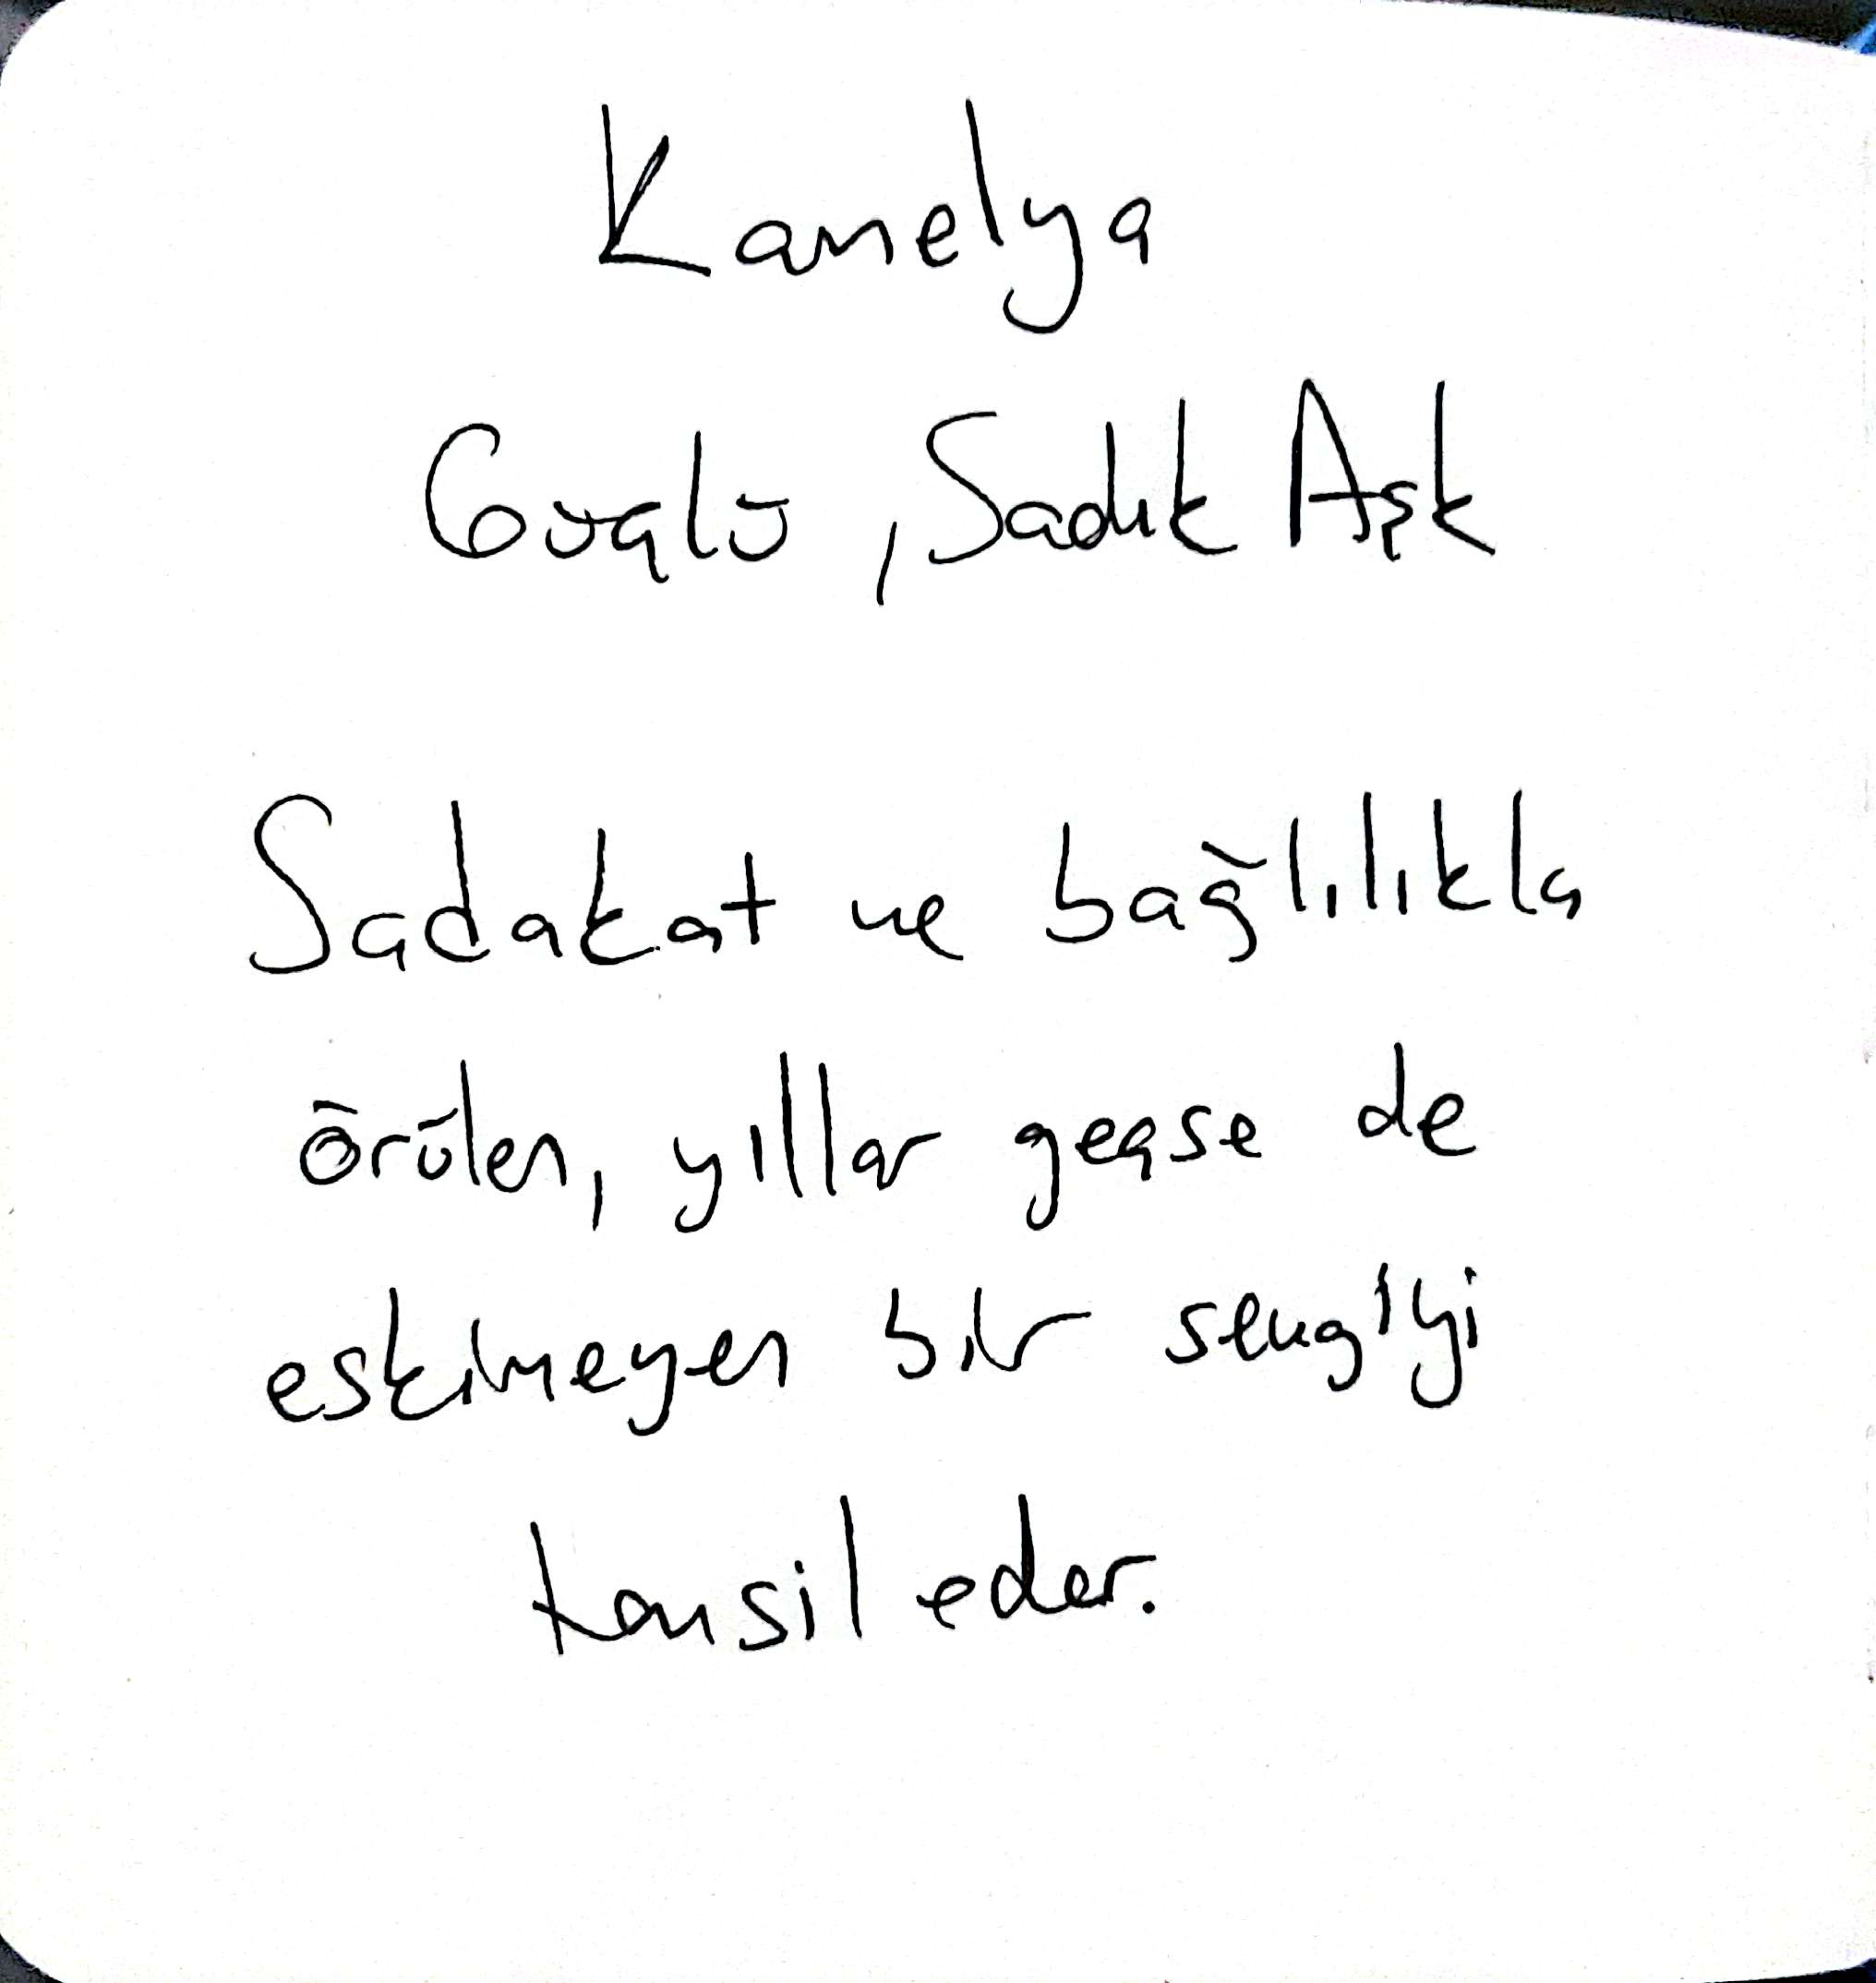 Kamelya
Güçlü, Sadık Aşk
Sadakat ve bağlılıkla
örülen, yıllar geçse de
eskimeyen bir sevgiyi
temsil eder.